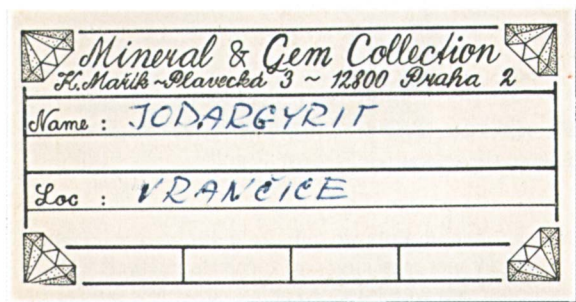 Mineral & Gem Collection
K. Mařík ~ Plavecká 3 ~ 12800 Praha 2
Name : JODARGYRIT
Loc : VRANČICE